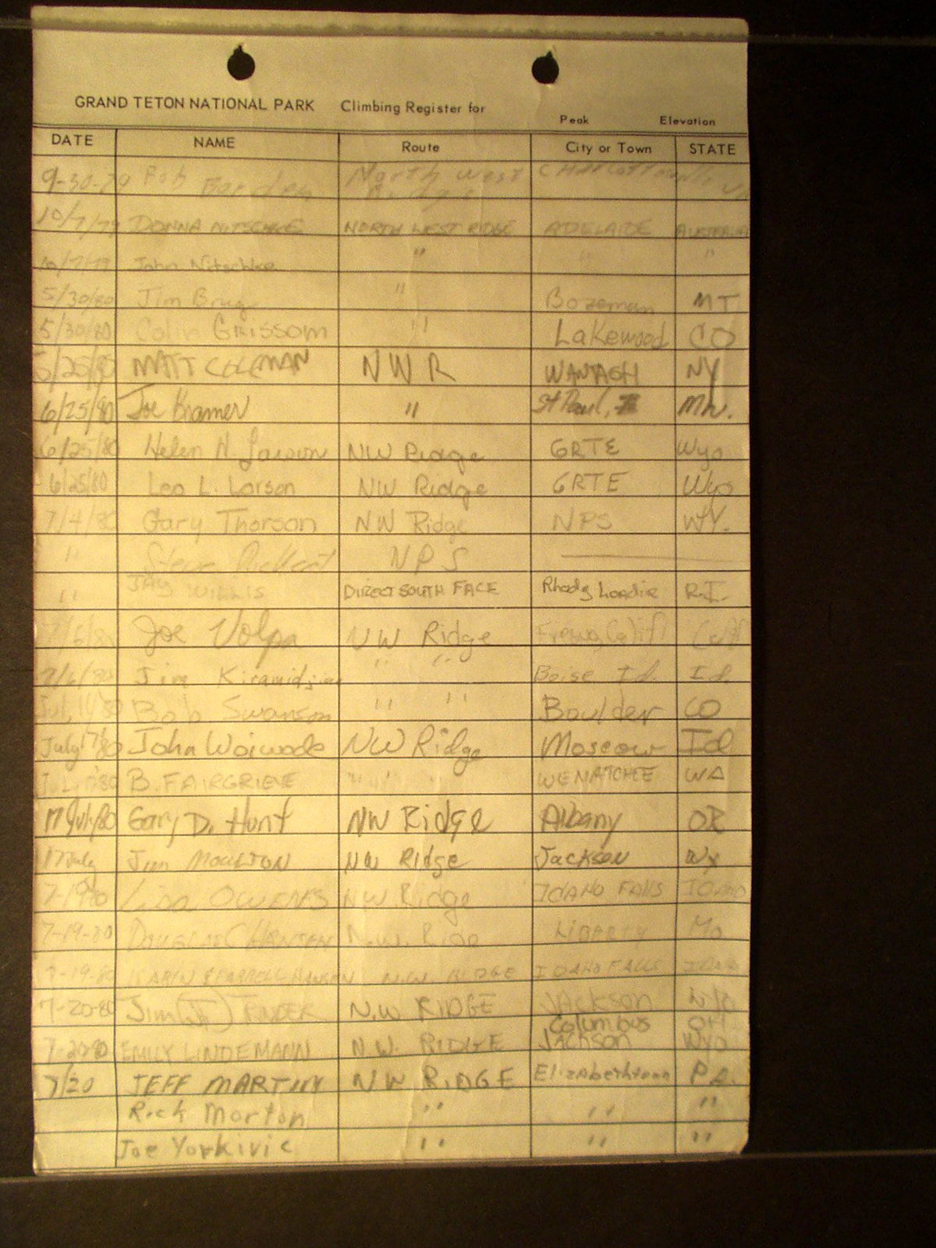 GRAND TETON NATIONAL PARK Climbing Register for
Peak Elevation
DATE NAME Route City or Town STATE
9-30-79 Bob North West Ridge
10/7/79 DONNA NITSCHKE NORTH WEST RIDGE ADELAIDE AUSTRALIA
10/7/79 John Nitschke " " "
5/30/80 Jim " Bozeman MT
5/30/80 Colin GRISSOM " Lakewood CO
MATT COLEMAN NWR WANTAGH NY
6/25/80 Joe Kramer " St Paul, Mn.
6/25/80 Helen N. Larson NW Ridge GRTE Wyo
6/25/80 Leo L. Larson NW Ridge GRTE Wyo
7/4/80 Gary Thorson NW Ridge NPS WY.
" Steve NPS
" JAY WILLIS DIRECT SOUTH FACE R.I.
7/6/80 Joe Volpa NW Ridge Calif
7/6/80 Jim " " Boise Id. Id.
Bob Swanson " " Boulder CO
July 17/80 John Woiwode NW Ridge Moscow Id
B. FAIRGRIEVE " " WENATCHE WA
17 July 80 Gary D. Hunt NW Ridge Albany OR
17 July Jim MOULTON NW Ridge Jackson Wy
Lisa OWENS NW Ridge IDAHO FALLS IDAHO
7-19-80 HANSEN N.W. LIBERTY Mo
7-19-80 KARIN HANSEN N.W. RIDGE IDAHO FALLS
7-20-80 Jim N.W RIDGE JACKSON WYO
Columbus OH
7-20-80 EMILY LINDEMANN N.W. RIDGE JACKSON WYO
7/20 JEFF MARTIN NW RIDGE Elizabethtown Pa.
Rick Morton " " "
Joe Yorkivic " " "